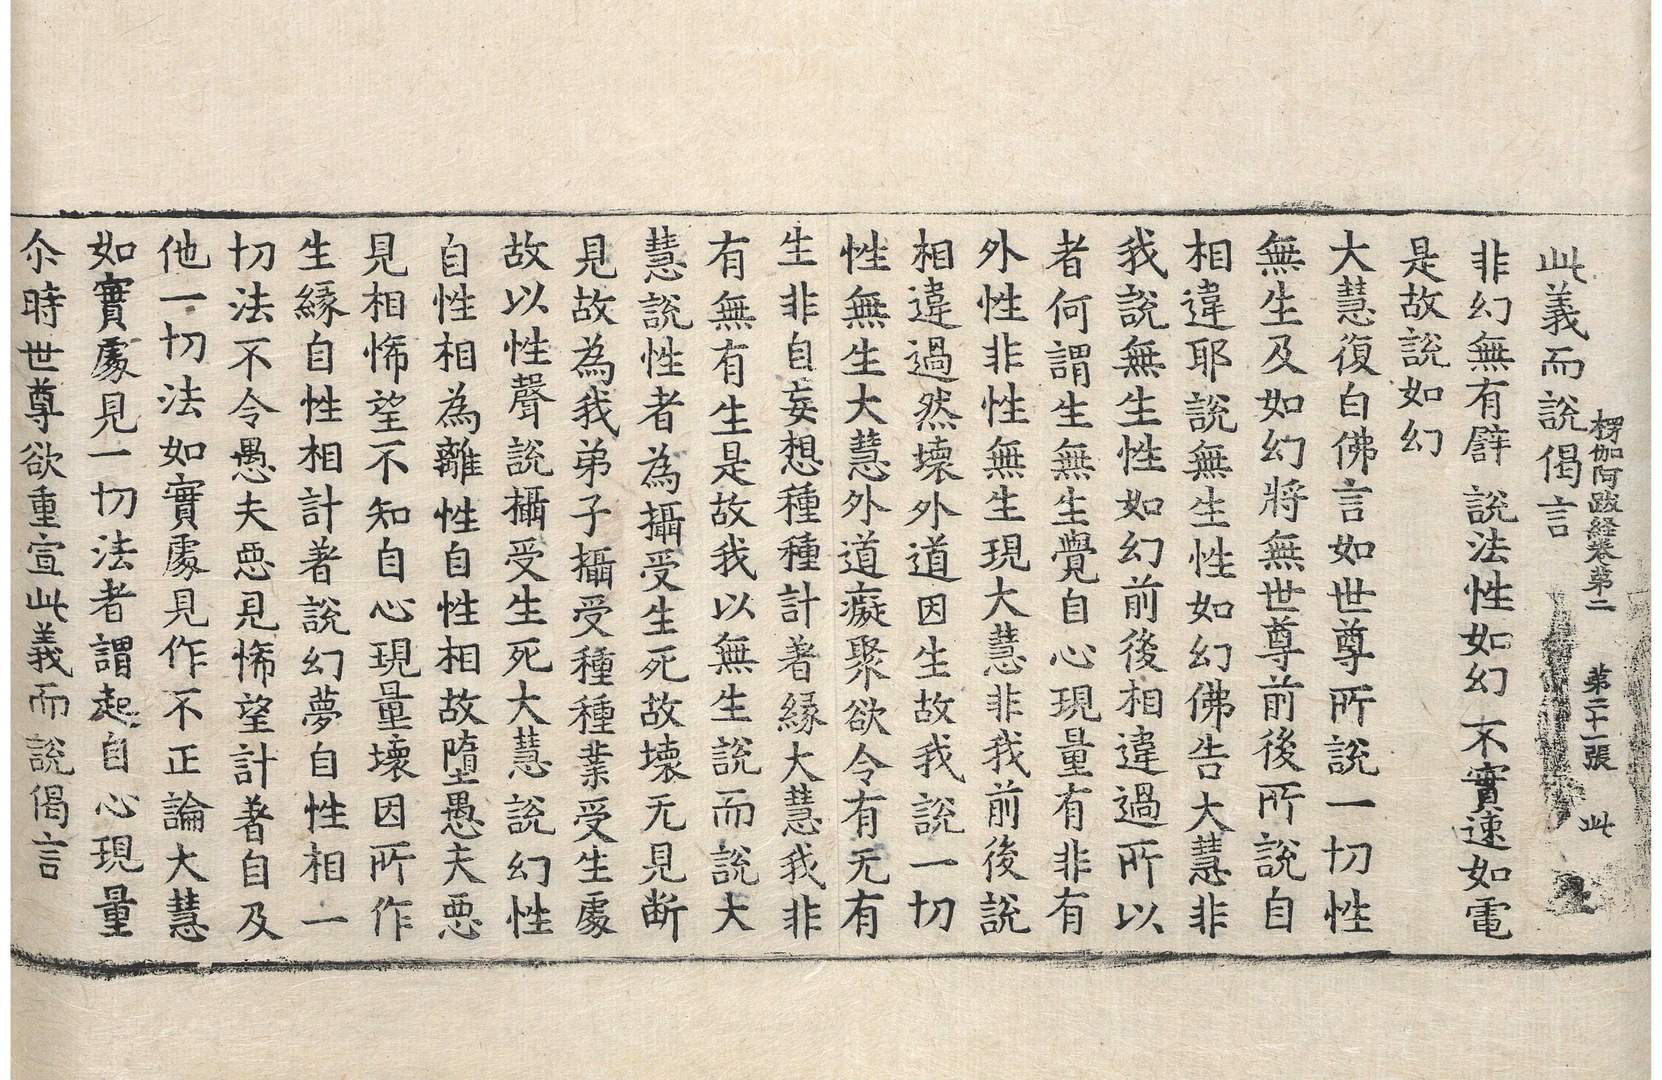 楞伽阿跋経卷第二 第二十一張 此
此義而說偈言
非幻無有譬 說法性如幻 不實速如電
是故說如幻
大慧復白佛言如世尊所說一切性
無生及如幻將無世尊前後所說自
相違耶說無生性如幻佛告大慧非
我說無生性如幻前後相違過所以
者何謂生無生覺自心現量有非有
外性非性無生現大慧非我前後說
相違過然壞外道因生故我說一切
性無生大慧外道癡聚欲令有无有
生非自妄想種種計著縁大慧我非
有無有生是故我以無生說而說大
慧說性者為攝受生死故壞无見斷
見故為我弟子攝受種種業受生處
故以性聲說攝受生死大慧說幻性
自性相為離性自性相故墮愚夫惡
見相悕望不知自心現量壞因所作
生縁自性相計著說幻夢自性相一
切法不令愚夫惡見悕望計著自及
他一切法如實處見作不正論大慧
如實處見一切法者謂起自心現量
尒時世尊欲重宣此義而說偈言